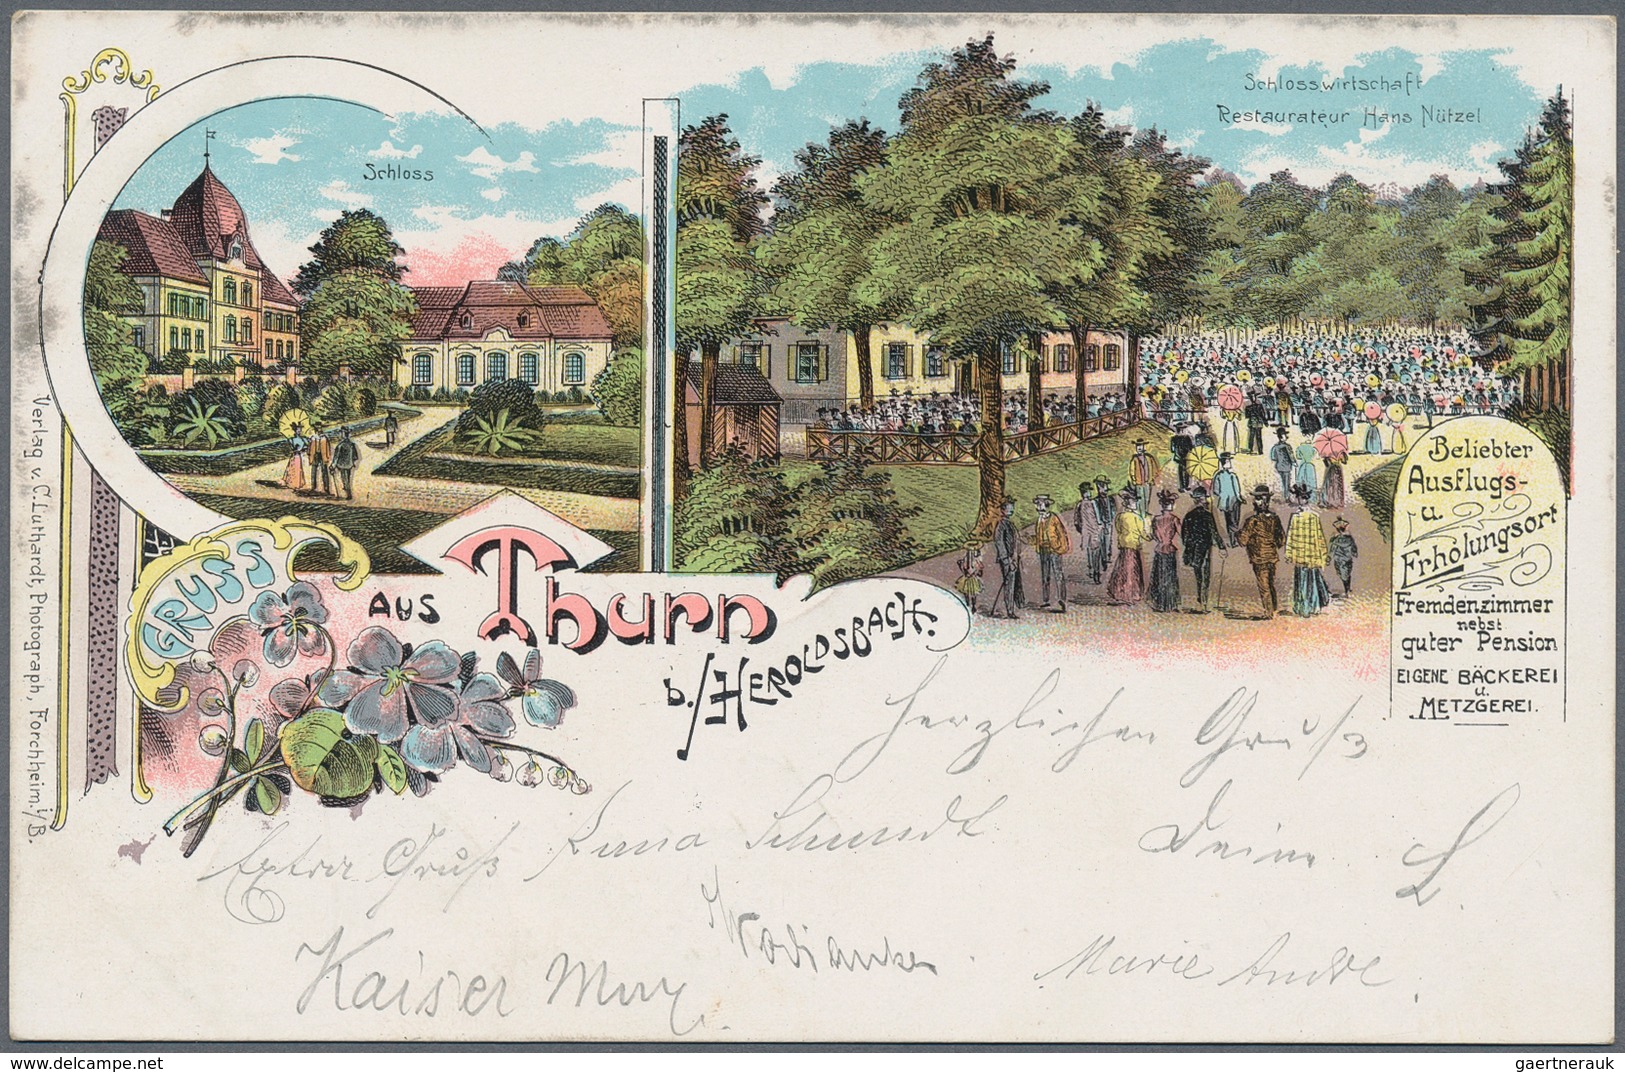 Schloss
Schlosswirtschaft
Restaurateur Hans Nützel
Beliebter
Ausflugs-
u.
Erholungsort
Fremdenzimmer
nebst
guter Pension
EIGENE BÄCKEREI
u.
METZGEREI.
GRUSS
AUS Thurn
b./HEROLDSBACH.
Verlag v. C. Luthardt, Photograph, Forchheim i/B.
Herzlichen Gruß
Deine L.
Extra Gruß Schmidt
Kaiser Max.
Marie Andre.
www.delcampe.net
gaertnerauk